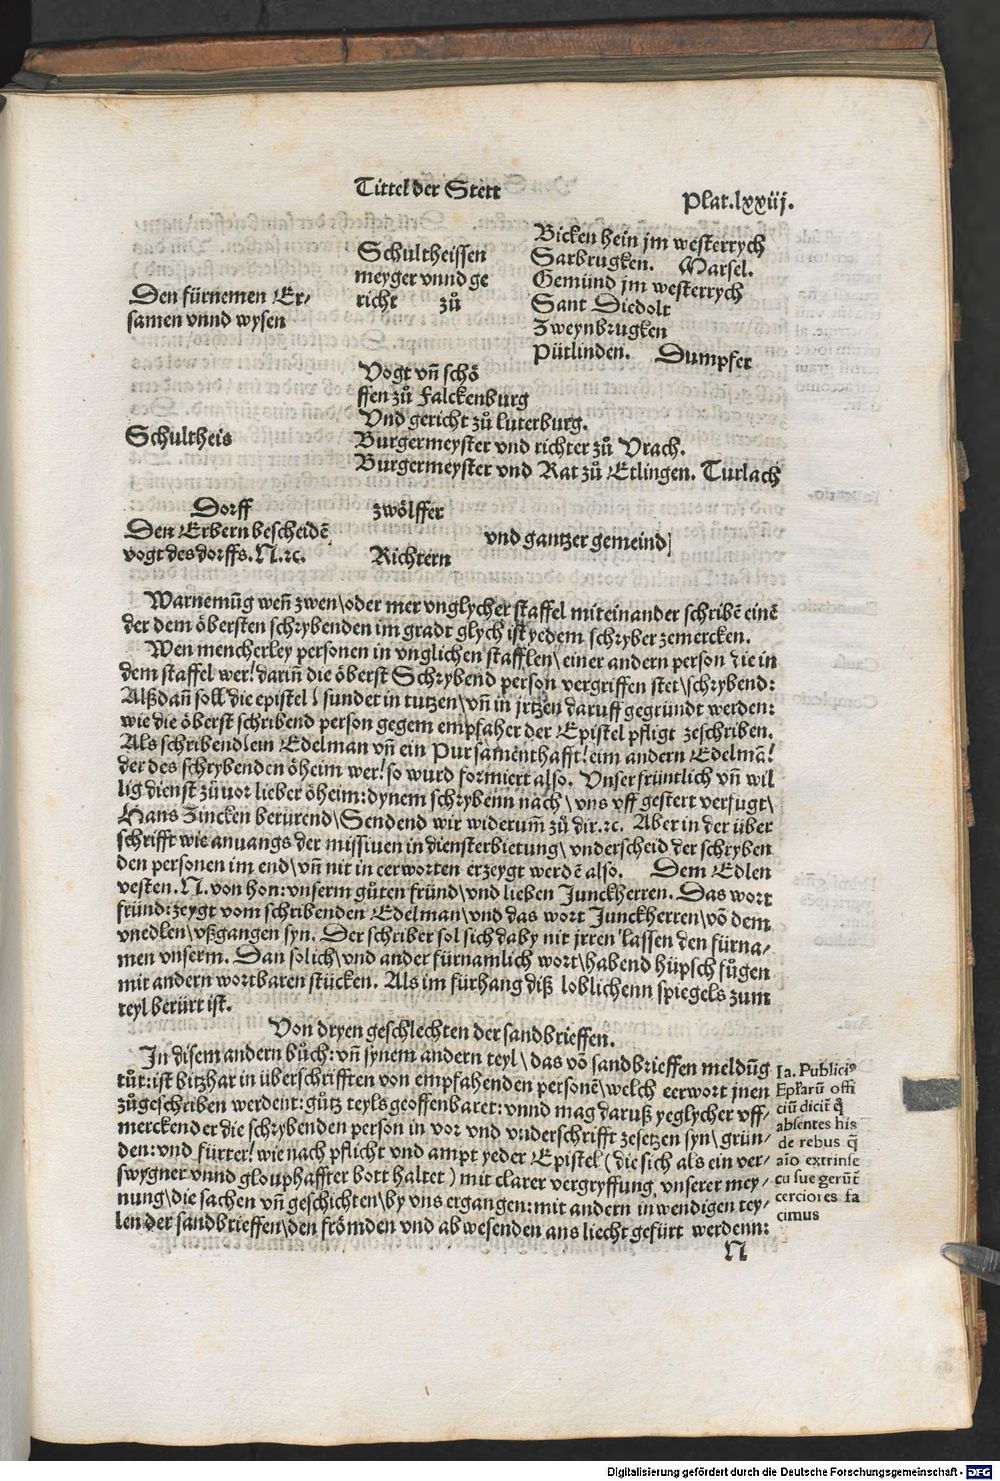 Tittel der Stett
Plat.lxxiij.
Den fürnemen Er⸗
samen vnnd wysen
Schultheissen
meyger vnnd ge
richt zů
Bicken hein jm westerrych
Sarbrugken. Marsel.
Gemünd jm westerrych
Sant Diedolt
Zweynbrugken
Pütlinden. Dumpfer
Schultheis
Vogt vñ schö
ffen zů Falckenburg
Vnd gericht zů luterburg.
Burgermeyster vnd richter zů Vrach.
Burgermeyster vnd Rat zů Etlingen. Turlach
Dorff
Den Erbern bescheidẽ
vogt des dorffs. N. ꝛc.
zwölffer
Richtern
vnd gantzer gemeind
Warnemũg weñ zwen\oder mer vnglycher staffel miteinander schribẽ einẽ
der dem öbersten schrybenden im gradt glych ist yedem schryber zemercken.
Wen mencherley personen in vnglichen stafflen\ einer andern person die in
dem staffel wer! dariñ die öberst Schrybend person vergriffen stet\schrybend:
Alßdañ soll die epistel ( sundet in tutzen\ vñ in jrtzen daruff gegründt werden:
wie die öberst schribend person gegem empfaher der Epistel pfligt zeschriben.
Als schribend(ein Edelman vñ ein Pur samẽnthafft! eim andern Edelmã!
der des schrybenden öheim wer! so wurd formiert also. Vnser früntlich vñ wil
lig dienst zůuor lieber öheim: dynem schrybenn nach \ vns vff gestert verfugt\
Hans Zincken berürend\ Sendend wir widerum̃ zů dir. ꝛc. Aber in der über
schrifft wie anuangs der missiuen in diensterbietung\ vnderscheid der schryben
den personen im end\ vñ nit in eerworten erzeygt werdẽ also. Dem Edlen
vesten. N. von hon: vnserm gůten fründ\vnd lieben Junckherren. Das wort
fründ: zeygt vom schribenden Edelman\vnd das wort Junckherren\ võ dem
vnedlen\ vßgangen syn. Der schriber sol sich daby nit jrren lassen den fürna⸗
men vnserm. Dan solich\ vnd ander fürnamlich wort\ habend hüpsch fůgen
mit andern wortbaren stücken. Als im fürhang diß loblichenn spiegels zum
teyl berürt ist.
Von dryen geschlechten der sandbrieffen.
In disem andern bůch: vñ synem andern teyl \ das võ sandbrieffen meldũg
tůt: ist bitzhar in überschrifften von empfahenden personẽ\ welch eerwort jnen
zůgeschriben werdent: gůtz teyls geoffenbaret: vnnd mag daruß yeglycher vff⸗
merckender die schrybenden person in vor vnd vnderschrifft zesetzen syn\ grün⸗
den: vnd fürter! wie nach pflicht vnd ampt yeder Epistel ( die sich als ein ver⸗
swygner vnnd glouphaffter bott haltet ) mit clarer vergryffung vnserer mey⸗
nung\ die sachen vñ geschichten\ by vns ergangen: mit andern inwendigen tey⸗
len der sandbrieffen\ den frömden vnd abwesenden ans liecht gefürt werdenn:
Ia. Publiciꝰ
Ep̃larũ offi
ciũ dicit q̃
absentes his
de rebus q̃
aĩo extrinse
cu sue gerũt̃
cerciores fa
cimus
N
Digitalisierung gefördert durch die Deutsche Forschungsgemeinschaft - DFG